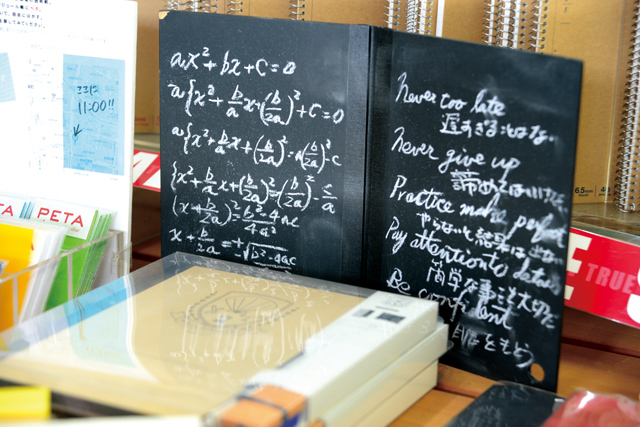 ここに
11:00!!
TA PETA
ax²+bx+C=0
a{x²+b/a x+(b/2a)²+C=0
a{x²+b/a x+(b/2a)²=a(b/2a)²-C
{x²+b/a x+(b/2a)²=(b/2a)²-c/a
(x+b/2a)²=b²-4ac/4a²
x+b/2a=±√b²-4ac
Never too late
遅すぎることはない
Never give up
諦めてはいけない
Practice make perfect
やらないと
Pay attention to details
簡単な事こそ大切だ
Be confident
をもつ
6.5mm
TRUE